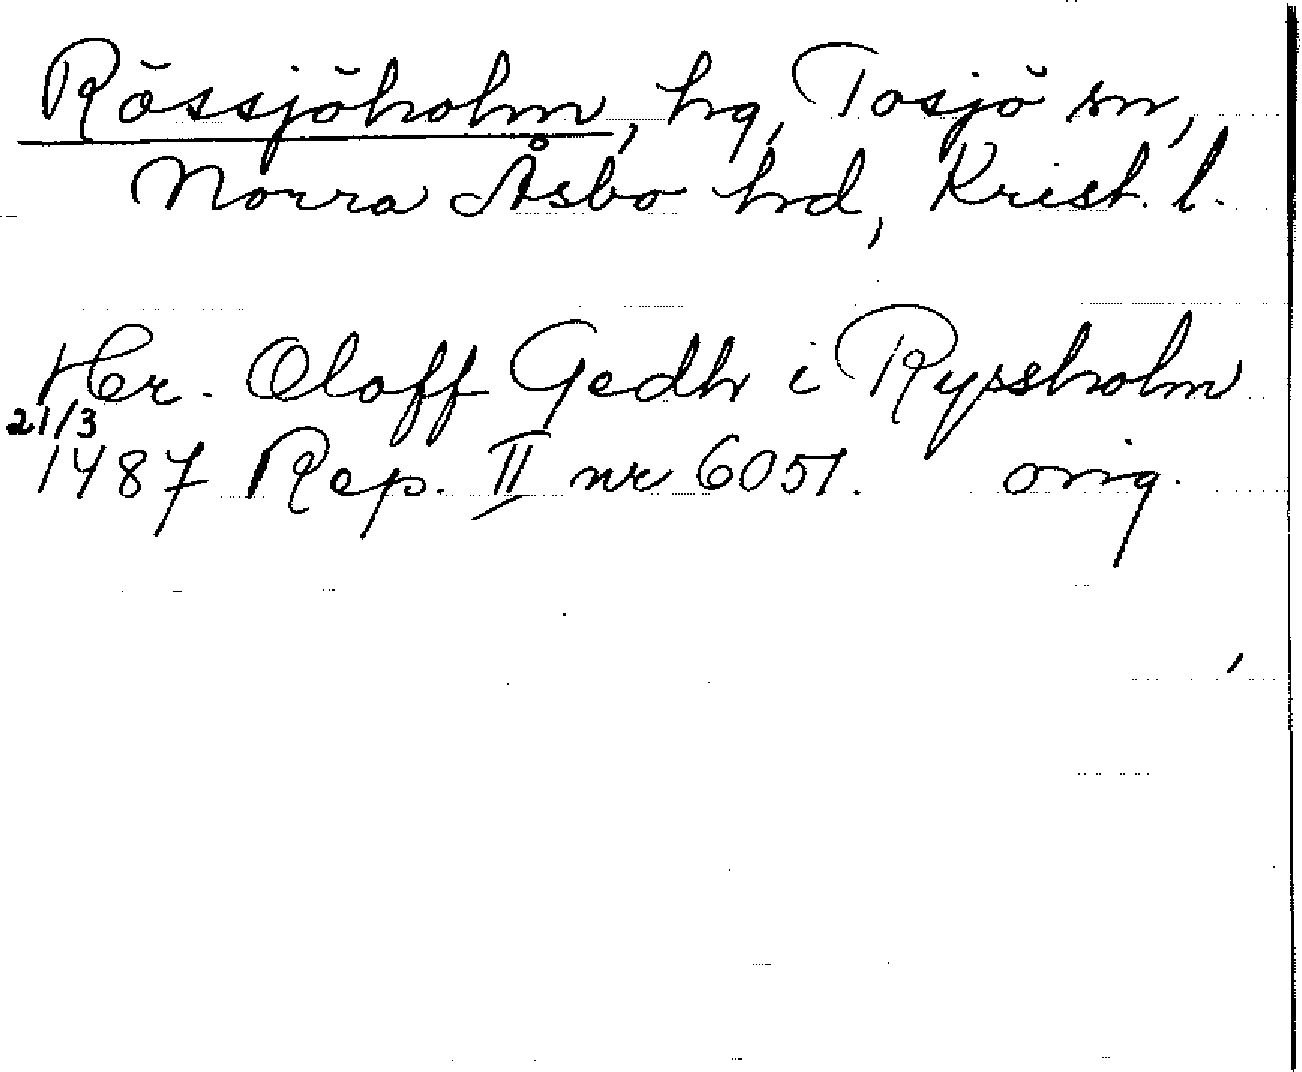 Rössjöholm, hg, Tosjö sn,
Norra Åsbo hd, Krist. l.
Her. Oloff Gedh i Ryssholm
21/3
1487 Rep. II nr 6051. orig.